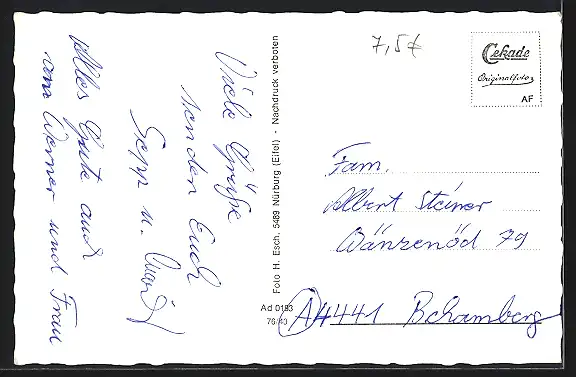 Viele Grüße
senden Euch
Sepp u.
Alles Gute auch
von Werner und Frau
Foto H. Esch, 5489 Nürburg (Eifel) - Nachdruck verboten
Ad 0193
76/43
7,5€
Cekade
Originalfoto
AF
Fam.
Albert Steiner
Wänzenöd 79
A 4441 Behamberg